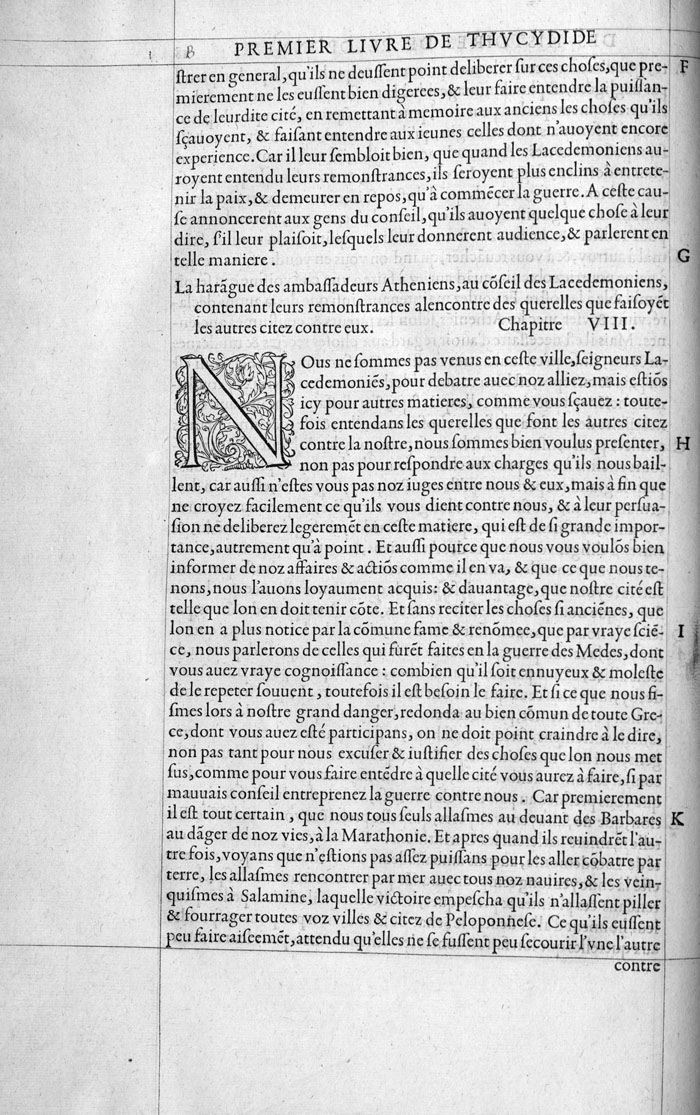 B PREMIER LIVRE DE THVCYDIDE
ſtrer en general, qu'ils ne deuſſent point deliberer ſur ces choſes, que pre- F
mierement ne les euſſent bien digerees, & leur faire entendre la puiſſan-
ce de leurdite cité, en remettant à memoire aux anciens les choſes qu'ils
ſçauoyent, & faiſant entendre aux ieunes celles dont n'auoyent encore
experience. Car il leur ſembloit bien, que quand les Lacedemoniens au-
royent entendu leurs remonſtrances, ils ſeroyent plus enclins à entrete-
nir la paix, & demeurer en repos, qu'à commẽcer la guerre. A ceſte cau-
ſe annoncerent aux gens du conſeil, qu'ils auoyent quelque choſe à leur
dire, ſ'il leur plaiſoit, leſquels leur donnerent audience, & parlerent en
telle maniere. G
La harãgue des ambaſſadeurs Atheniens, au cõſeil des Lacedemoniens,
contenant leurs remonſtrances alencontre des querelles que faiſoyẽt
les autres citez contre eux. Chapitre VIII.
NOus ne ſommes pas venus en ceſte ville, ſeigneurs La-
cedemoniẽs, pour debatre auec noz alliez, mais eſtiõs
icy pour autres matieres, comme vous ſçauez: toute-
fois entendans les querelles que font les autres citez
contre la noſtre, nous ſommes bien voulus preſenter, H
non pas pour reſpondre aux charges qu'ils nous bail-
lent, car auſſi n'eſtes vous pas noz iuges entre nous & eux, mais à fin que
ne croyez facilement ce qu'ils vous dient contre nous, & à leur perſua-
ſion ne deliberez legeremẽt en ceſte matiere, qui eſt de ſi grande impor-
tance, autrement qu'à point. Et auſſi pource que nous vous voulõs bien
informer de noz affaires & actiõs comme il en va, & que ce que nous te-
nons, nous l'auons loyaument acquis: & dauantage, que noſtre cité eſt
telle que lon en doit tenir cõte. Et ſans reciter les choſes ſi anciẽnes, que
lon en a plus notice par la cõmune fame & renõmee, que par vraye ſciẽ- I
ce, nous parlerons de celles qui furẽt faites en la guerre des Medes, dont
vous auez vraye cognoiſſance: combien qu'il ſoit ennuyeux & moleſte
de le repeter ſouuent, toutefois il eſt beſoin le faire. Et ſi ce que nous fi-
ſmes lors à noſtre grand danger, redonda au bien cõmun de toute Gre-
ce, dont vous auez eſté participans, on ne doit point craindre à le dire,
non pas tant pour nous excuſer & iuſtifier des choſes que lon nous met
ſus, comme pour vous faire entẽdre à quelle cité vous aurez à faire, ſi par
mauuais conſeil entreprenez la guerre contre nous. Car premierement
il eſt tout certain, que nous tous ſeuls allaſmes au deuant des Barbares K
au dãger de noz vies, à la Marathonie. Et apres quand ils reuindrẽt l'au-
tre fois, voyans que n'eſtions pas aſſez puiſſans pour les aller cõbatre par
terre, les allaſmes rencontrer par mer auec tous noz nauires, & les vein-
quiſmes à Salamine, laquelle victoire empeſcha qu'ils n'allaſſent piller
& fourrager toutes voz villes & citez de Peloponneſe. Ce qu'ils euſſent
peu faire aiſeemẽt, attendu qu'elles ne ſe fuſſent peu ſecourir l'vne l'autre
contre